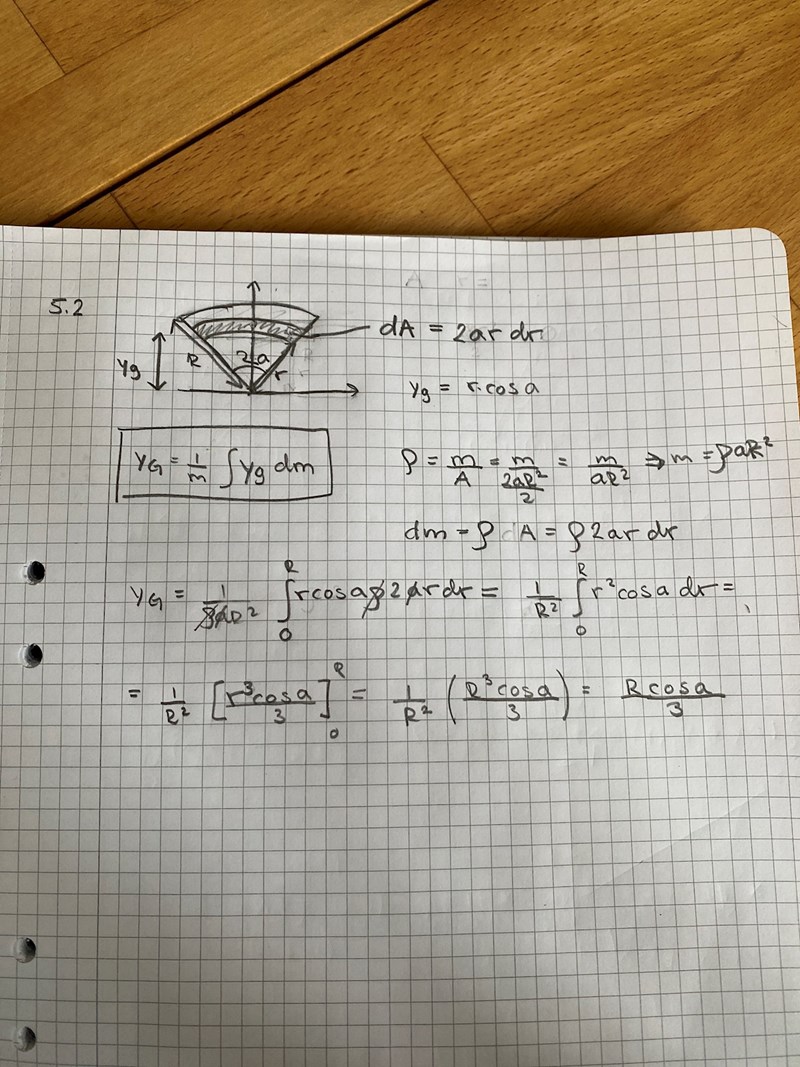 5.2
dA = 2ar dr
yg R 2a r
yg = r·cos a
YG = 1/m ∫ yg dm
ρ = m/A = m/(2aR²/2) = m/aR² ⇒ m = ρaR²
dm = ρ dA = ρ 2ar dr
YG = 1/ρaR² ∫₀ᴿ r cos a ρ 2ar dr = 1/R² ∫₀ᴿ r² cos a dr =
= 1/R² [r³cos a/3]₀ᴿ = 1/R² (R³cos a/3) = R cos a/3